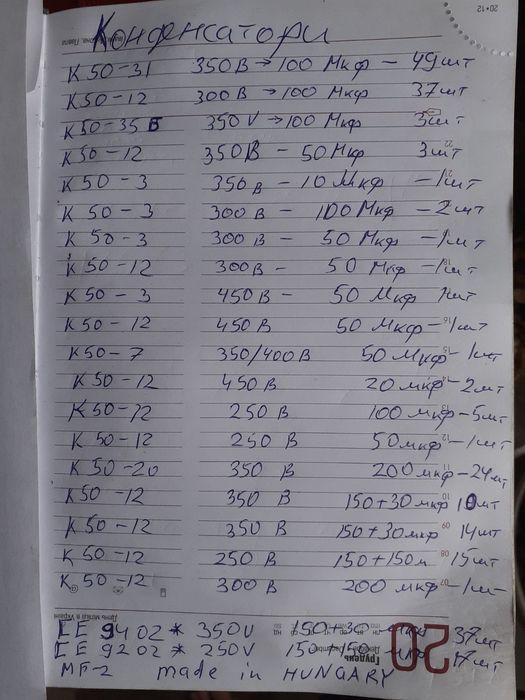 20•12
Конденсатори
К 50-31 350 В → 100 Мкф - 49 шт
К 50-12 300 В → 100 Мкф 37 шт
К 50-35 Б 350 V → 100 Мкф 3 шт
К 50-12 350 В - 50 Мкф 3 шт
К 50-3 350 в - 10 Мкф - 1 шт
К 50-3 300 в - 100 Мкф - 2 шт
К 50-3 300 в - 50 Мкф - 1 шт
К 50-12 300 в - 50 Мкф - 1 шт
К 50-3 450 в - 50 Мкф 1 шт
К 50-12 450 В 50 Мкф - 1 шт
К 50-7 350/400 В 50 Мкф - 1 шт
К 50-12 450 В 20 мкф - 2 шт
К 50-12 250 В 100 мкф - 5 шт
К 50-12 250 В 50 мкф - 1 шт
К 50-20 350 В 200 мкф - 24 шт
К 50-12 350 В 150+30 мкф 10 шт
К 50-12 350 В 150+30 мкф 14 шт
К 50-12 250 В 150+150 м 15 шт
К 50-12 300 В 200 мкф - 1 шт
20
Грудень
CE 9402 * 350V 150+30 мкф 37 шт
CE 9202 * 250V 150+150 мкф 17 шт
MF-2 made in HUNGARY